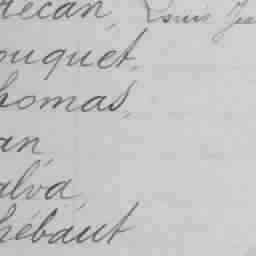 recan, Louis
ouquet,
homas,
an
alva,
hébaut